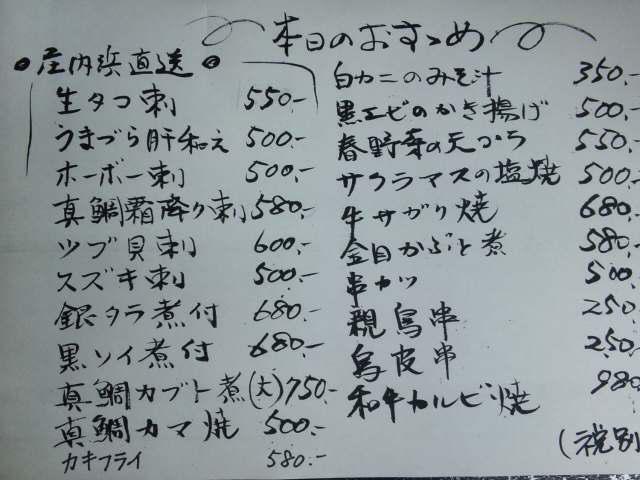 本日のおすゝめ
庄内浜直送
生タコ刺 550.-
うまづら肝和え 500.-
ホーボー刺 500.-
真鯛霜降り刺 580.-
ツブ貝刺 600.-
スズキ刺 500.-
銀タラ煮付 680.-
黒ソイ煮付 680.-
真鯛カブト煮(大) 750.-
真鯛カマ焼 500.-
カキフライ 580.-
白カニのみそ汁 350.-
黒エビのかき揚げ 500.-
春野菜の天ぷら 550.-
サクラマスの塩焼 500.-
牛サガリ焼 680.-
金目かぶと煮 580.-
串カツ 500.
親鳥串 250.
鳥皮串 250.
和牛カルビ焼 980
(税別